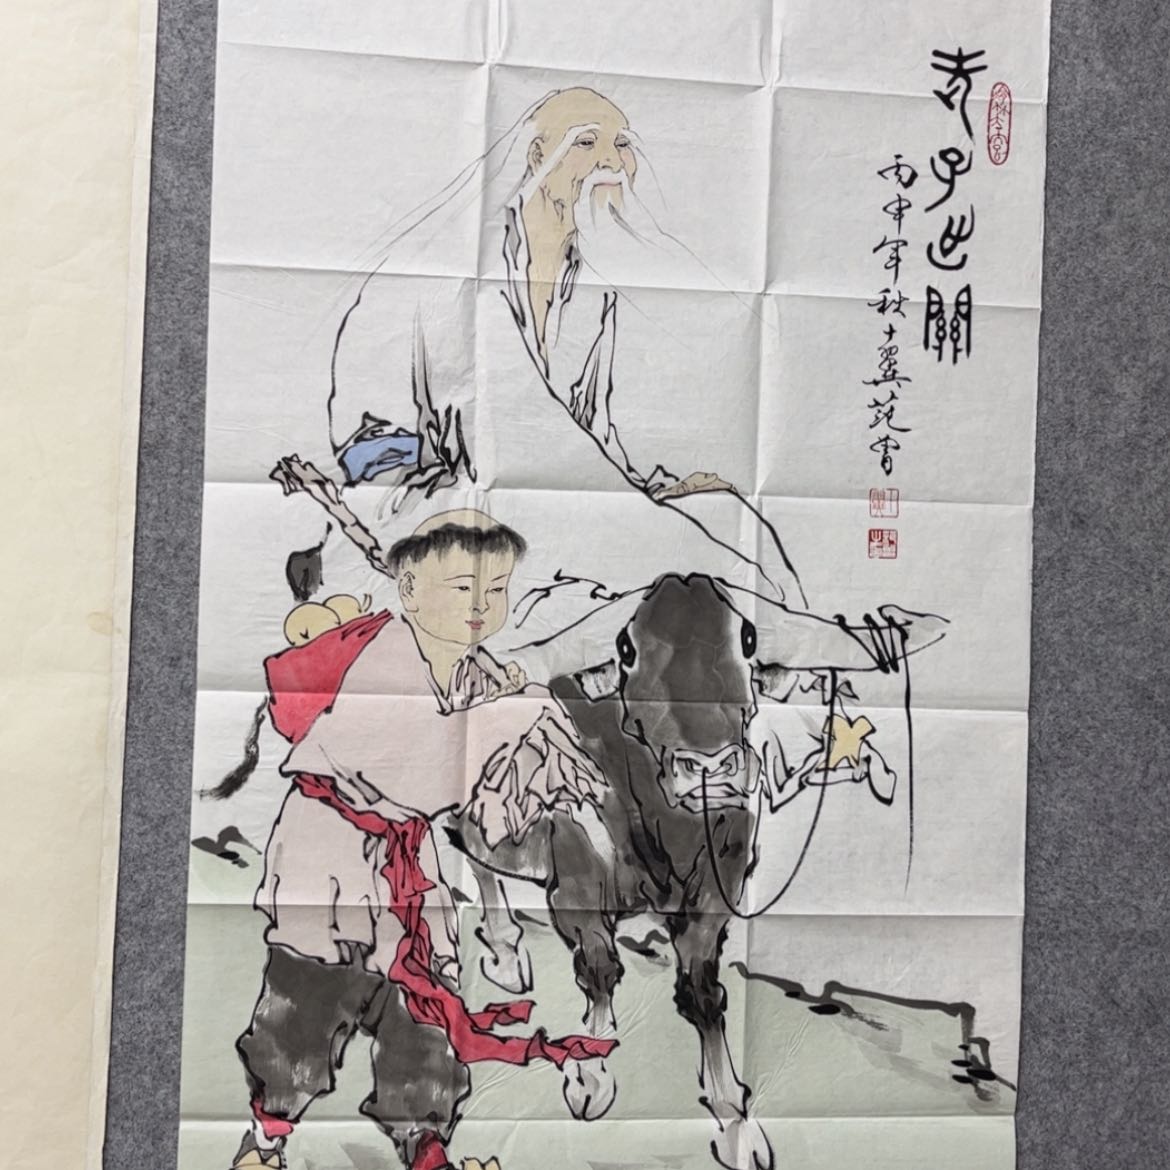 老子出關
丙申年秋十翼范曾